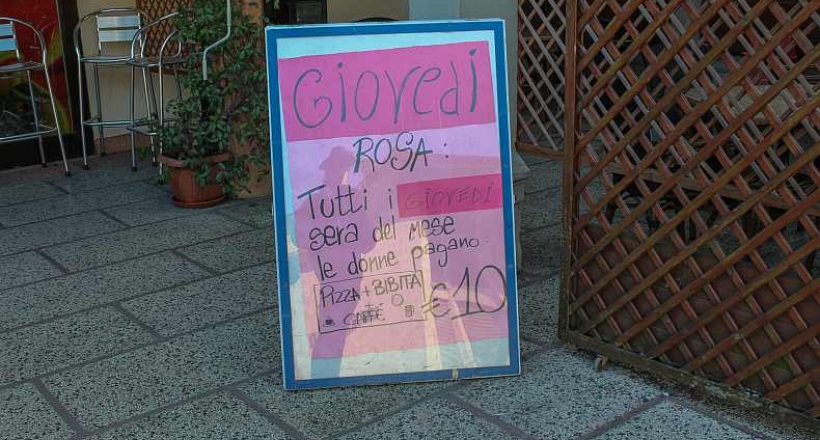 Giovedì
ROSA:
Tutti i GIOVEDI
sera del mese
le donne pagano:
PIZZA + BIBITA
CAFFÉ
€10